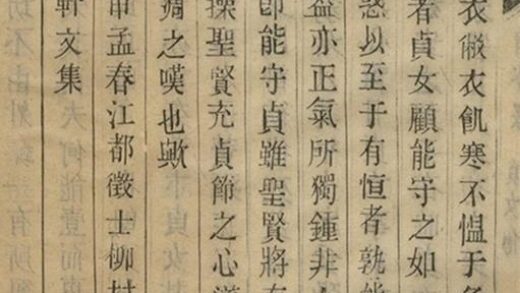 衣敝衣飢寒不慍于
者貞女顧能守之如
惑以至于有恒者孰
亦正氣所獨鍾非
即能守貞雖聖賢將
操聖賢充貞節之心
凋之嘆也歟
申孟春江都徵士柳
軒文集